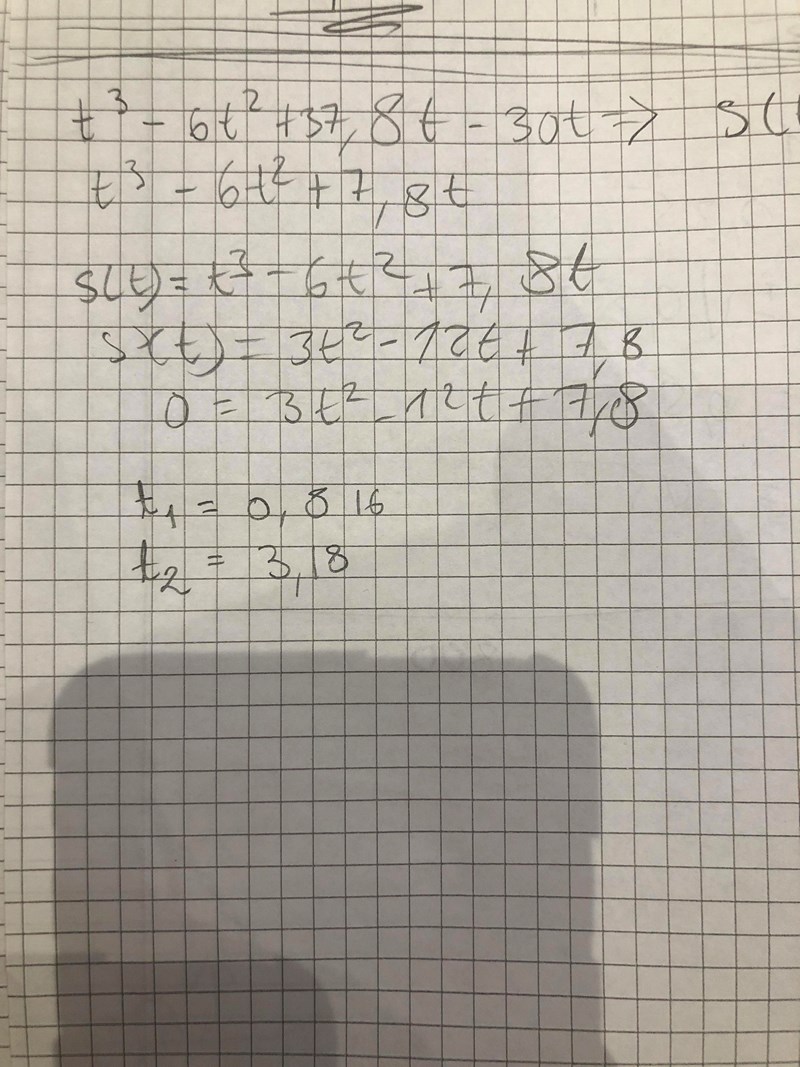 t³ - 6t² + 37,8t - 30t => s(
t³ - 6t² + 7,8t
s(t) = t³ - 6t² + 7, 8t
s'(t) = 3t² - 12t + 7,8
0 = 3t² - 12t + 7,8
t₁ = 0,816
t₂ = 3,18